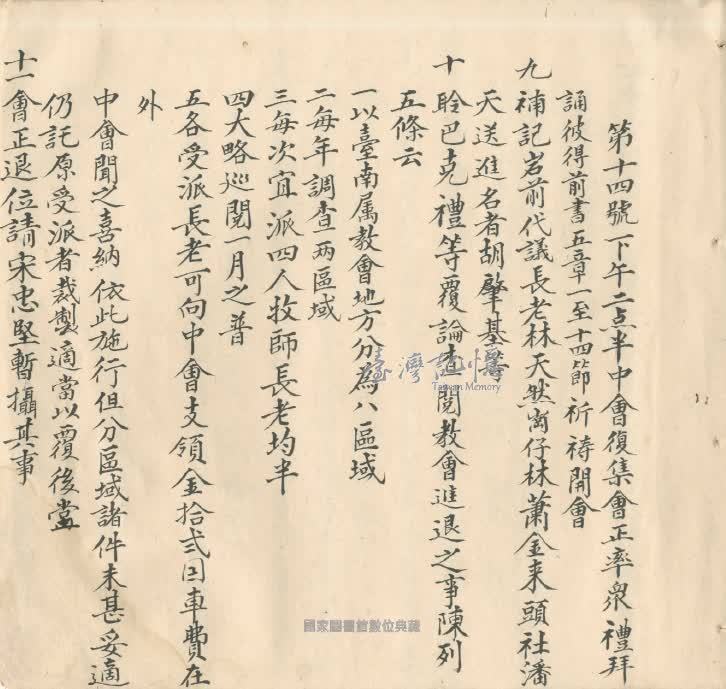 第十四號下午二点半中會復集會正率衆禮拜
誦彼得前書五章一至十四節祈禱開會
九 補記岩前代議長老林天然崗仔林蕭金来頭社潘
天送進名者胡肇基等
十 聆巴克禮等覆論巡閱教會進退之事陳列
五條云
一以臺南属教會地方分為八區域
二每年調查两區域
三每次宜派四人牧師長老均半
四大略巡閱一月之普
五各受派長老可向中會支領金拾弍囙車費在
外
中會聞之喜納依此施行但分區域諸件未甚妥適
仍託原受派者裁製適當以覆後當
十一會正退位請宋忠堅暫攝其事
臺灣記憶
Taiwan Memory
國家圖書館數位典藏